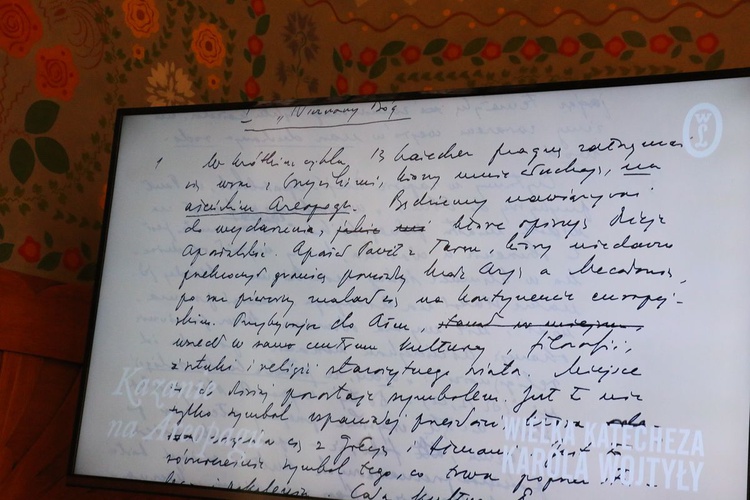 1 „Nieznany Bóg
1 W krótkim cyklu 13 katechez pragnę zatrzymać
się wraz z wszystkimi, którzy mnie słuchają, na
ateńskim Areopagu. Będziemy nawiązywać
do wydarzenia, jakie które opisują Dzieje
Apostolskie. Apostoł Paweł z Tarsu, który niedawno
przekroczył granicę pomiędzy Azją a Macedonią,
po raz pierwszy znalazł się na kontynencie europej-
skim. Przybywając do Aten, stanął w miejscu
wszedł w samo centrum kultury, filozofii,
sztuki i religii starożytnego świata. Miejsce
to do dzisiaj pozostaje symbolem. Jest to nie
tylko symbol wspaniałej przeszłości, która
wiąże się z Grecją i Atenami. Jest to
równocześnie symbol tego, co trwa poprzez
Cała
Kazanie
na Areopagu
WIELKA KATECHEZA
KAROLA WOJTYŁY